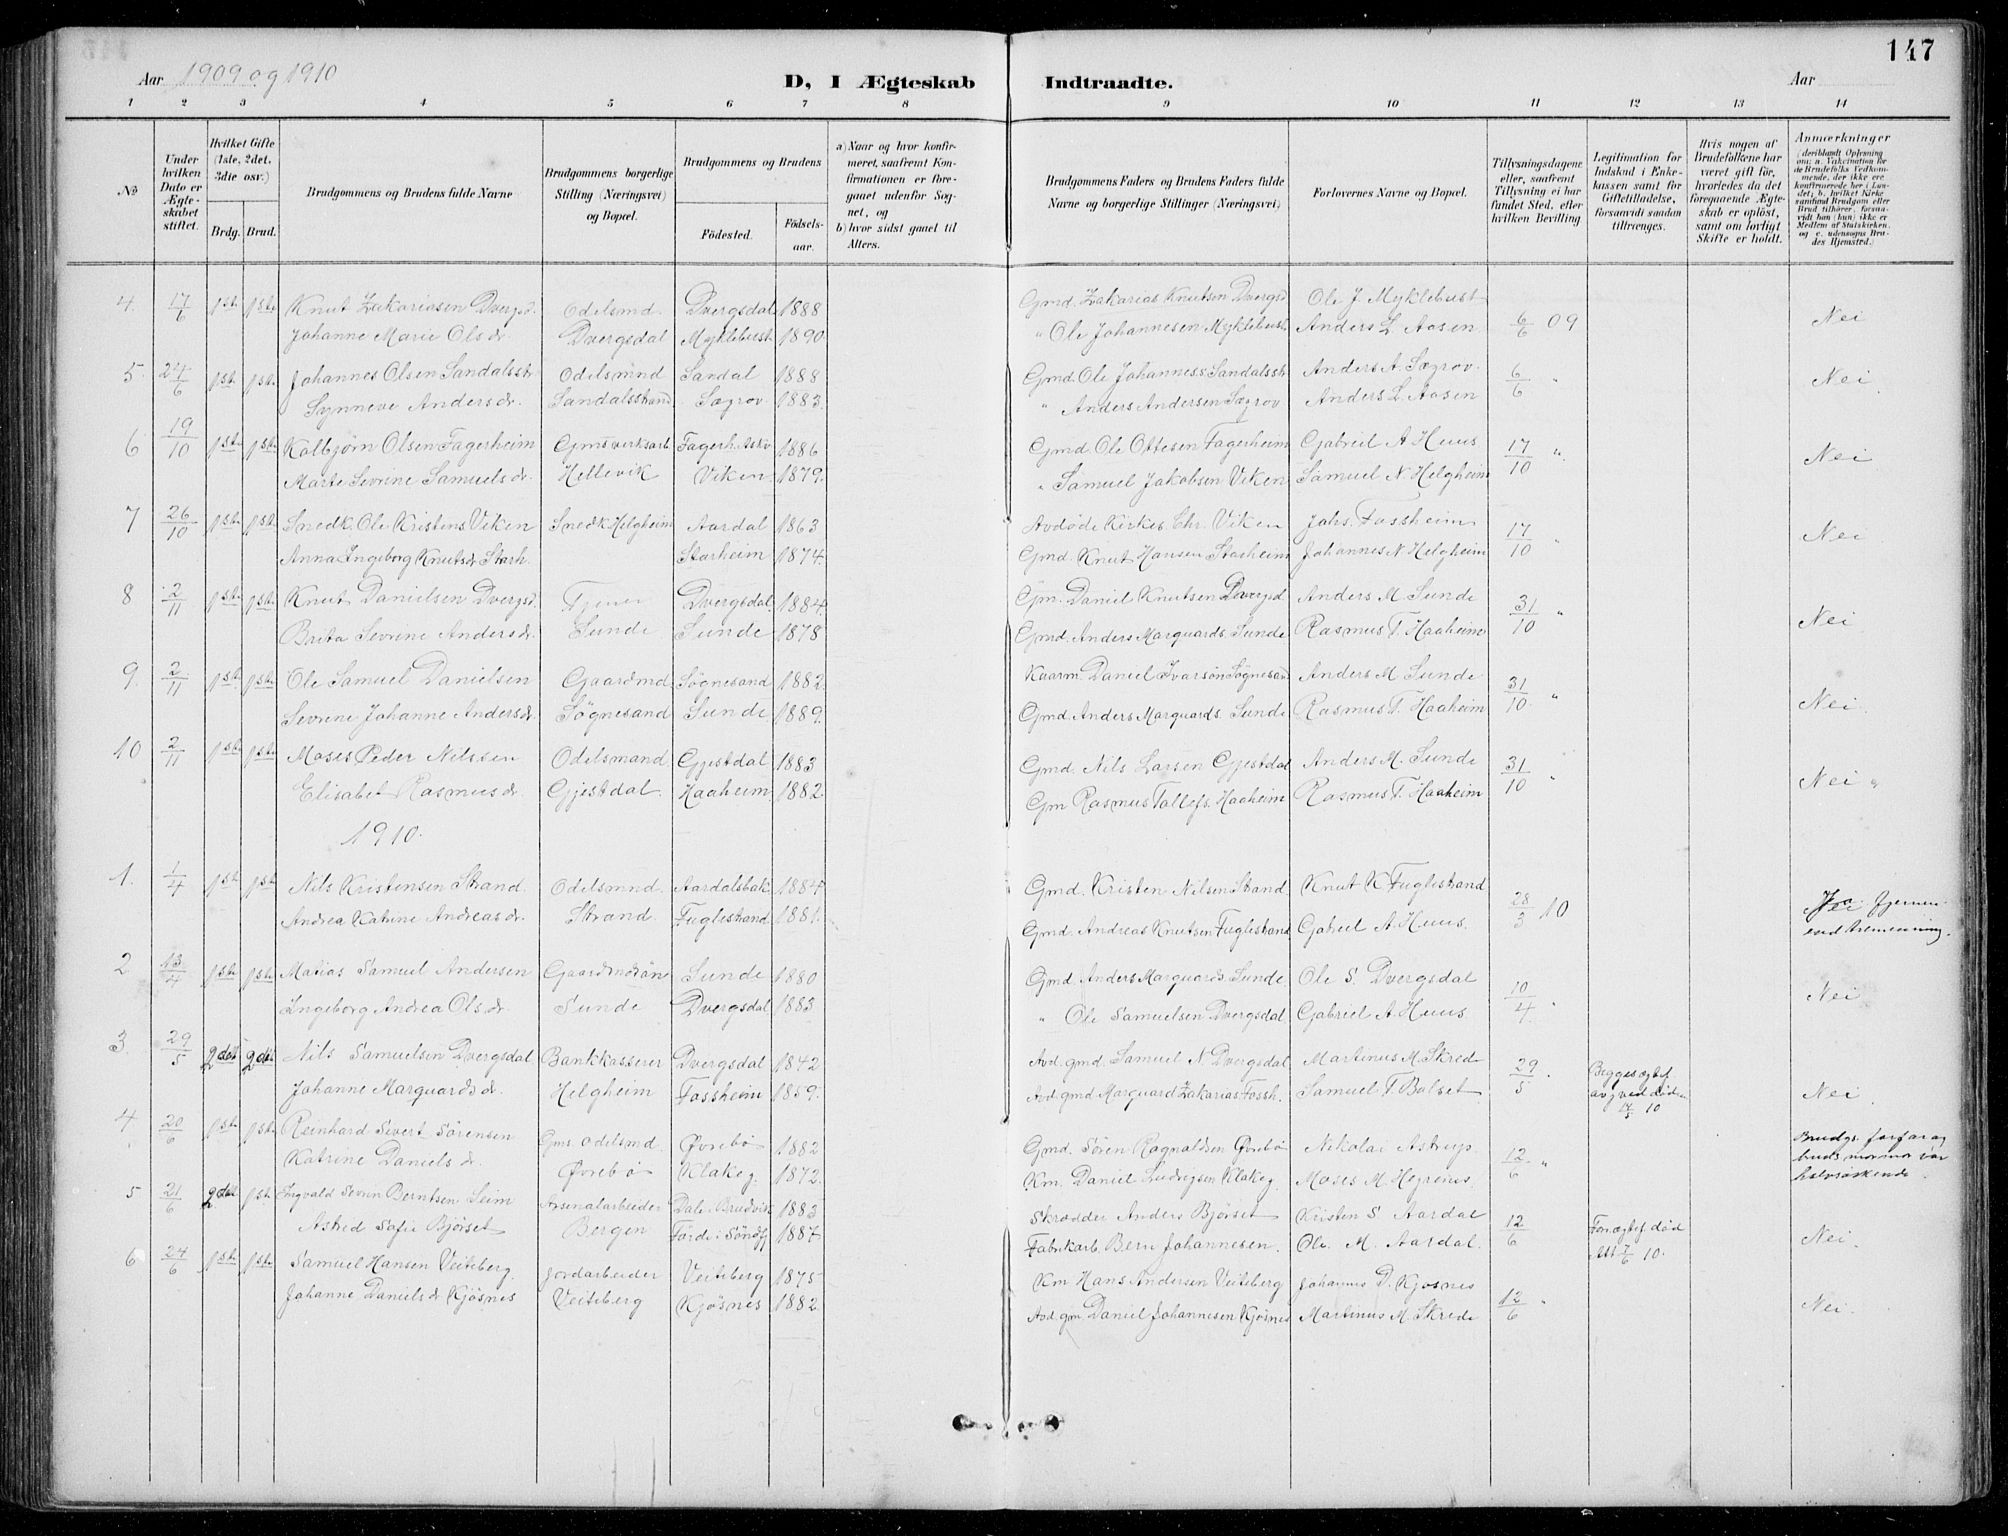 147
Aar 1909 og 1910
D, I Ægteskab Indtraadte.
Aar
1 2 3 4 5 6 7 8 9 10 11 12 13 14
No
Under hvilken Dato er Ægteskabet stiftet.
Hvilket Gifte (1ste, 2det, 3die osv.)
Brdg. Brud.
Brudgommens og Brudens fulde Navne
Brudgommens borgerlige Stilling (Næringsvei) og Bopæl.
Brudgommens og Brudens
Födested.
Födselsaar.
a) Naar og hvor konfirmeret, saafremt Konfirmationen er foregaaet udenfor Sognet, og
b) hvor sidst gaaet til Alters.
Brudgommens Faders og Brudens Faders fulde Navne og borgerlige Stillinger (Næringsvei)
Forlovernes Navne og Bopæl.
Tillysningsdagene eller, saafremt Tillysning ei har fundet Sted, efter hvilken Bevilling
Legitimation for Indskud i Enkekassen samt for Giftetilladelse, forsaavidt saadan tiltrænges.
Hvis nogen af Brudefolkene har været gift før, hvorledes da det foregaaende Ægteskab er oplöst, samt om lovligt Skifte er holdt.
Anmærkninger
(deriblandt Oplysning om: a. Vakcination for de Brudefolks Vedkommende, der ikke ere konfirmerede her i Landet; b. hvilket Kirkesamfund Brudgom eller Brud tilhörer, forsaavidt han (hun) ikke er Medlem af Statskirken, og c. udensogns Brudes Hjemsted.)
4. 17/6 1ste 1ste Knut Zakariasen Dvergsd. Odelsmd. Dvergsdal 1888 Gmd. Zakarias Knutsen Dvergsd Ole J. Myklebust 6/6 09 Nei
Johanne Marie Olsdr. Dvergsdal Myklebust 1890. " Ole Johannesen Myklebust Anders L Aasen
5. 24/6 1ste 1ste Johannes Olsen Sandalsstr Odelsmnd Sandal 1888 Gmd. Ole Johanness Sandalsstr Anders A. Søgrov 6/6 " Nei
Synneve Andersdr. Sandalsstrand Søgrov 1883. " Anders Andersen Søgrov Anders L. Aasen
6 19/10 1ste 1ste Kolbjørn Olsen Fagerheim Gmsvirksarb. Fagerh. 1886 Gmd Ole Ottesen Fagerheim Gabriel A Huus 17/10 " Nei
Marte Sevrine Samuelsdr. Hellevik Viken 1879. " Samuel Jakobsen Viken Samuel N Helgheim
7 26/10 1ste 1ste Snedk. Ole Kristens. Viken Snedk Helgheim Aardal 1863 Avdøde Kirkes. Chr. Viken Johs. Fossheim 17/10 " Nei
Anna Ingeborg Knutsdr Starh. Starheim 1874. Gmd. Knut Hansen Starheim Johannes N Helgheim
8 2/11 1ste 1ste Knut Danielsen Dvergsd. Tjener Dvergsdal 1884. Gm. Daniel Knutsen Dvergsd Anders M Sunde 31/10 " Nei
Brita Sevrine Andersdr. Sunde Sunde 1878 Gmd. Anders Marquards. Sunde Rasmus T. Haaheim
9. 2/11 1ste 1ste Ole Samuel Danielsen Gaardmd Søgnesand 1882. Kaarm. Daniel Ivarsøn Søgnesand Anders M Sunde 31/10 " Nei.
Sevrine Johanne Andersdr. Søgnesand Sunde 1889. Gmd. Anders Marquards. Sunde Rasmus T. Haaheim
10 2/11 1ste 1ste Moses Peder Nilssen Odelsmand Gjestdal 1883 Gmd. Nils Larsen Gjestdal Anders M. Sunde 31/10 " Nei "
Elisabet Rasmusdr. Gjestdal. Haaheim 1882. Gm Rasmus Tollefs. Haaheim Rasmus T. Haaheim
1910.
1. 1/4 1ste 1ste Nils Kristensen Strand. Odelsmnd. Aardalsbak. 1884. Gmd. Kristen Nilsen Strand Knut K Fuglestrand 28/3 10 Ja. fjernere
Andrea Katrine Andreasdr. Strand Fuglestrand 1881. Gmd. Andreas Knutsen Fuglestrand Gabriel A Huus. end tremenning.
2 13/4 1ste 1ste Matias Samuel Andersen Gaardmdsøn Sunde 1880 Gmd. Anders Marquards. Sunde Ole S. Dvergsdal 10/4 " Nei
Ingeborg Andrea Olsdr. Sunde Dvergsdal 1883 " Ole Samuelsen Dvergsdal Gabriel A Huus.
3. 29/5 2det 2det Nils Samuelsen Dvergsdal Bankkasserer Dvergsdal 1842 Avd. gmd. Samuel N. Dvergsdal Martinus M. Skrede 29/5 " Begges ægtef.
Johanne Marquardsdr. Helgheim Fossheim 1859. Avd. gmd Marquard Zakarias. Fossh. Samuel T. Bolset avg ved død Nei
4 20/6 1ste 1ste Reinhard Sivert Sörensen Gms. Odelsmd. Øvrebø 1882 Gmd. Sören Ragnaldsen Øvrebö Nikolai Astrup 12/6 " Brudgs. farfar og
Katrine Danielsdr. Øvrebø Klakeg. 1872. Km. Daniel Ludvigsen Klakeg. Moses M. Hegrenes. bruds mormor var halvsøskende
5 21/6 2det 1ste Ingvald Severin Berntsen Seim Arsenalarbeider Dale i Bruvik 1883 Skrædder Anders Bjørset Kristen S Aardal 12/6 Forr. ægtef død
Astrid Sofie Bjørset Bergen Førde i Söndf 1887. Fabrikarb. Bern Johannesen. Ole. M. Aardal. Att 7/6 10. Nei.
6 24/6 1ste 1ste Samuel Hansen Veiteberg. Jordarbeider Veiteberg 1875 Km Hans Andersen Veiteberg Johannes D. Kjøsnes 12/6 " Nei.
Johanne Danielsdr Kjøsnes Veiteberg Kjøsnes 1882. Avd. gm. Daniel Johannesen Kjøsnes Martinus M. Skrede